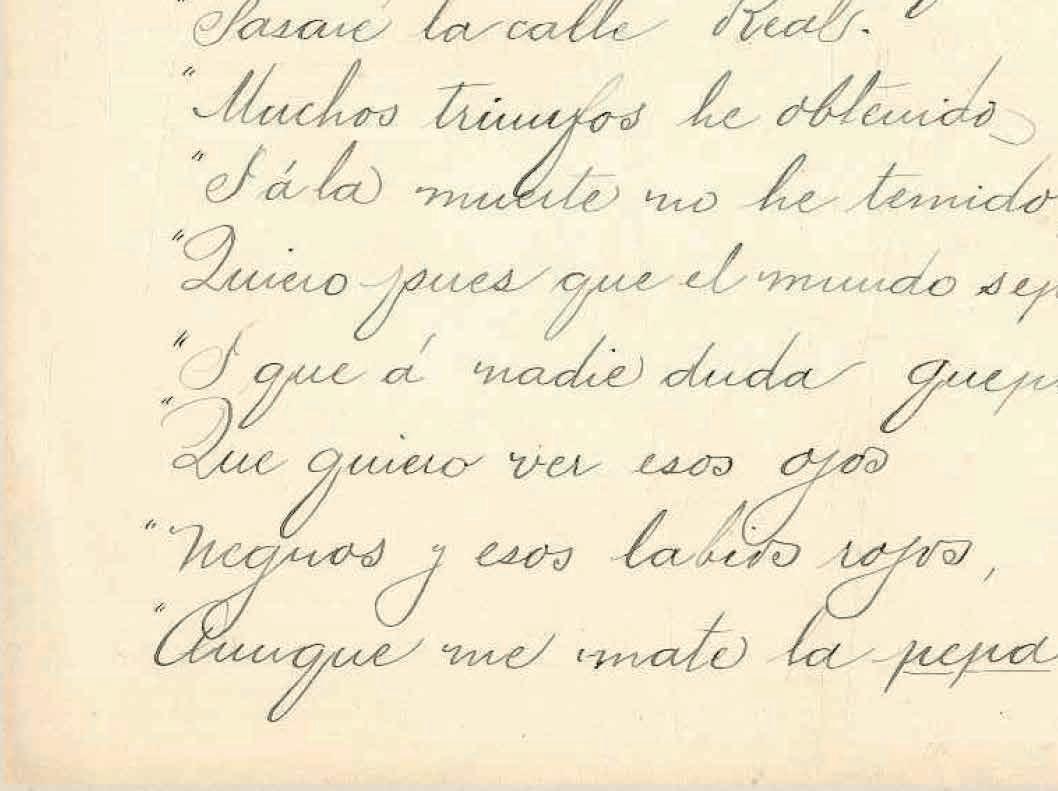 "Pasaré la calle Real.
"Muchos triunfos he obtenido
"I á la muerte no he temido
"Quiero pues que el mundo sep
"I que á nadie duda quep
"Que quiero ver esos ojos
"Negros y esos labios rojos,
"Aunque me mate la pepa